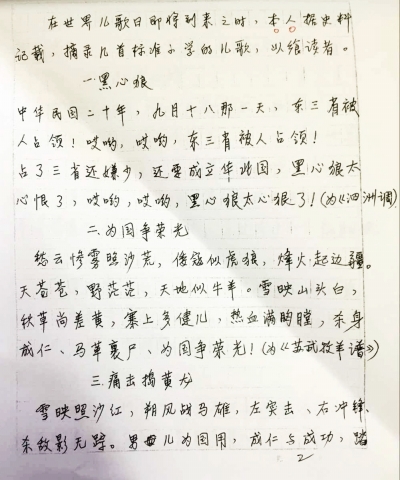 在世界儿歌日即将到来之时，本人据史料
记载，摘录几首标准小学的儿歌，以飨读者。
一.黑心狼
中华民国二十年，九月十八那一天，东三省被
人占领！哎哟，哎哟，东三省被人占领！
占了三省还嫌少，还要成立华北国，黑心狼太
心恨了，哎哟，哎哟，黑心狼太心狠了！(为《泗洲调》
二.为国争荣光
愁云惨雾照沙荒，倭寇似虎狼，烽火起边疆。
天苍苍，野茫茫，天地似牛羊。雪映山头白，
秋草尚差黄，塞上多健儿，热血满胸膛，杀身
成仁、马革裹尸、为国争荣光！(为《苏武牧羊谱》)
三.痛击捣黄龙
雪映照沙红，朔风战马雄，左突击、右冲锋、
杀敌影无踪。男儿为国用，成仁与成功，踏
2